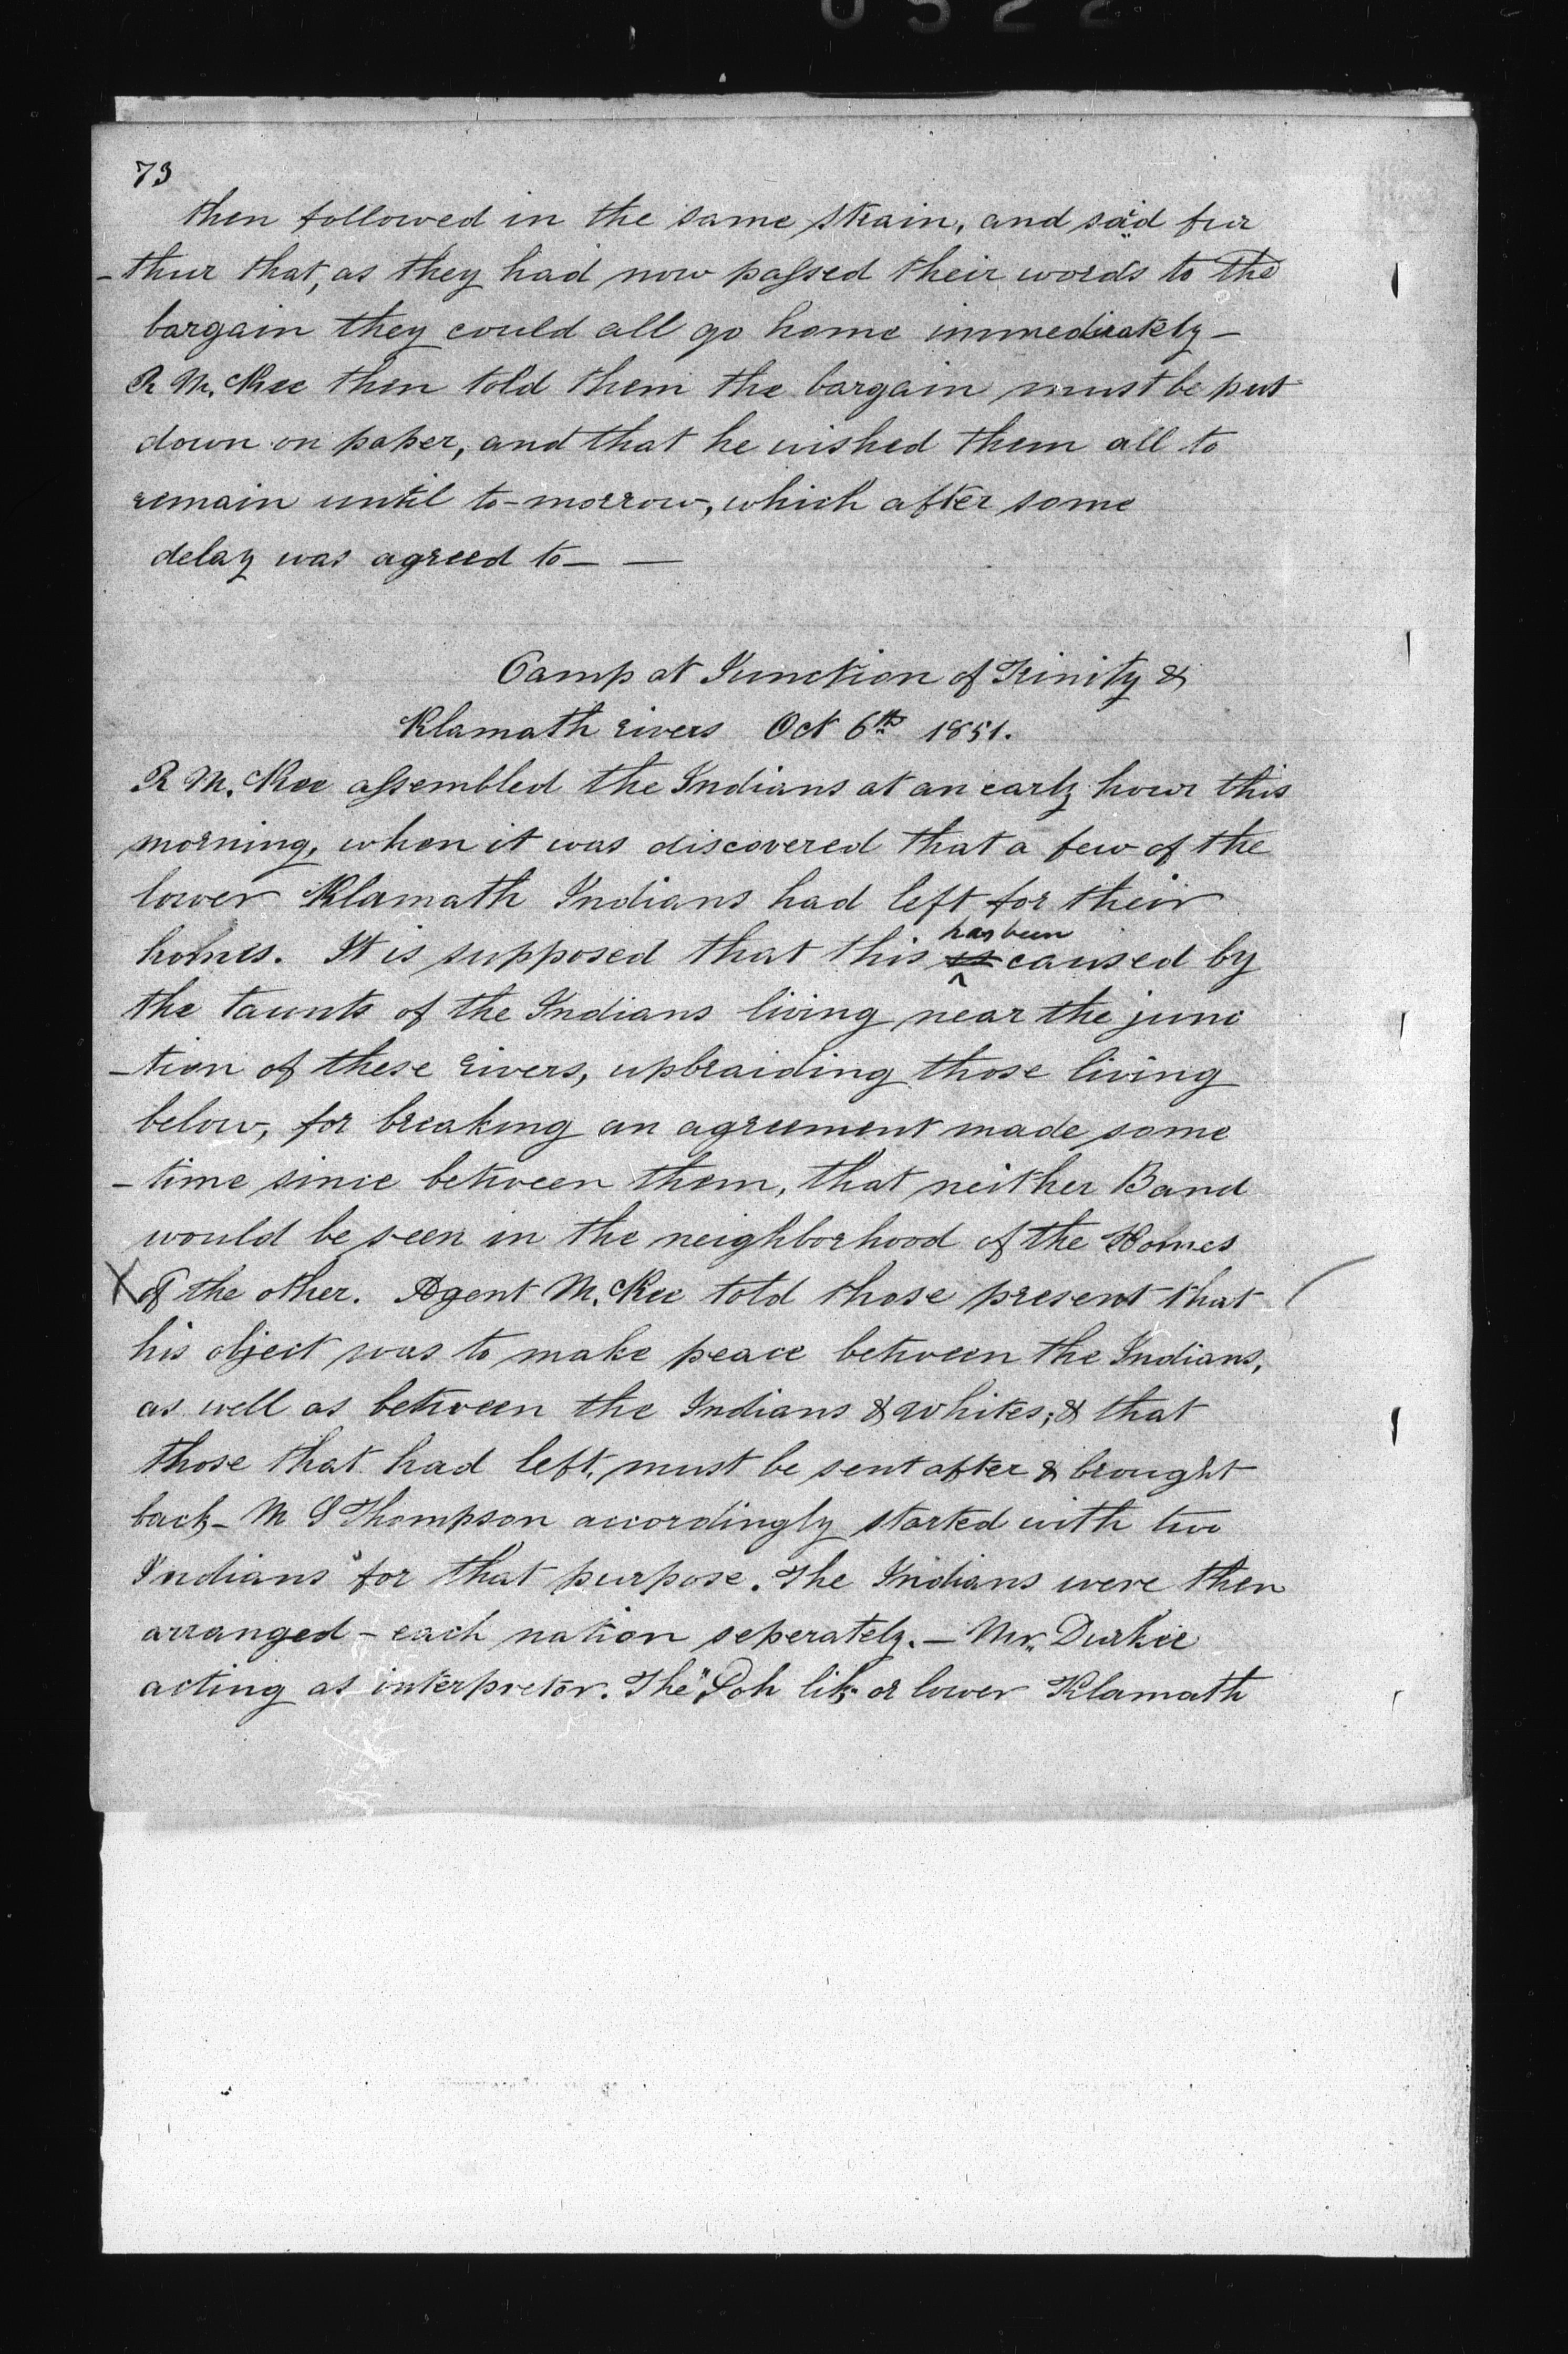 73
then followed in the same strain, and said fur
-thur that, as they had now passed their words to the
bargain they could all go home immediately -
R McKee then told them the bargain must be put
down on paper, and that he wished them all to
remain until to-morrow, which after some
delay was agreed to - —
Camp at Junction of Trinity &
Klamath rivers Oct 6th 1851.
R McKee assembled the Indians at an early hour this
morning, when it was discovered that a few of the
lower Klamath Indians had left for their
has been
homes. It is supposed that this is caused by
the taunts of the Indians living near the junc
-tion of these rivers, upbraiding those living
below, for breaking an agreement made some
-time since between them, that neither Band
would be seen in the neighborhood of the Homes
X of the other. Agent McKee told those present that
his object was to make peace between the Indians,
as well as between the Indians & whites; & that
those that had left, must be sent after & brought
back - M S Thompson accordingly started with two
Indians for that purpose. The Indians were then
arranged - each nation seperately. - Mr. Durkee
acting as interpretor. The "Poh lik" or lower Klamath